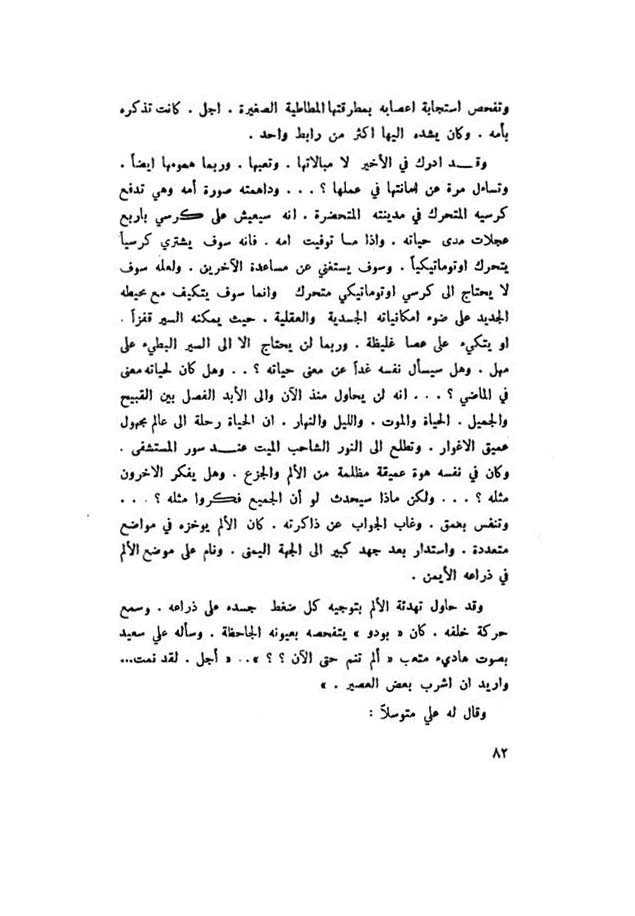 وتفحص استجابة اعصابه بمطرقتها المطاطية الصغيرة . اجل . كانت تذكره
بأمه . وكان يشده اليها اكثر من رابط واحد .
وقـــد ادرك في الأخير لا مبالاتها . وتعبها . وربما همومها ايضاً .
وتساءل مرة عن امانتها في عملها ؟ . . . وداهمته صورة أمه وهي تدفع
كرسيه المتحرك في مدينته المتحضرة . انه سيعيش على كرسي باربع
عجلات مدى حياته . واذا مـا توفيت امه . فانه سوف يشتري كرسياً
يتحرك اوتوماتيكياً . وسوف يستغني عن مساعدة الآخرين . ولعله سوف
لا يحتاج الى كرسي اوتوماتيكي متحرك وانما سوف يتكيف مع محيطه
الجديد على ضوء امكانياته الجسدية والعقلية . حيث يمكنه السير قفزاً .
او يتكيء على عصا غليظة . وربما لن يحتاج الا الى السير البطيء على
مهل . وهل سيسأل نفسه غداً عن معنى حياته ؟ . . وهل كان لحياته معنى
في الماضي ؟ . . . انه لن يحاول منذ الآن والى الأبد الفصل بين القبيح
والجميل . الحياة والموت . والليل والنهار . ان الحياة رحلة الى عالم مجهول
عميق الاغوار . وتطلع الى النور الشاحب الميت عنـــد سور المستشفى .
وكان في نفسه هوة عميقة مظلمة من الألم والجزع . وهل يفكر الاخرون
مثله ؟ . . . ولكن ماذا سيحدث لو أن الجميع فكروا مثله ؟ . . .
وتنفس بعمق . وغاب الجواب عن ذاكرته . كان الألم يوخزه في مواضع
متعددة . واستدار بعد جهد كبير الى الجهة اليمنى . ونام على موضع الألم
في ذراعه الأيمن .
وقد حاول تهدئة الألم بتوجيه كل ضغط جسده على ذراعه . وسمع
حركة خلفه . كان « بودو » يتفحصه بعيونه الجاحظة . وسأله علي سعيد
بصوت هاديء متعب « ألم تنم حتى الآن ؟ ؟ » . . « أجل . لقد نمت...
واريد ان اشرب بعض العصير . »
وقال له علي متوسلاً :
٨٢